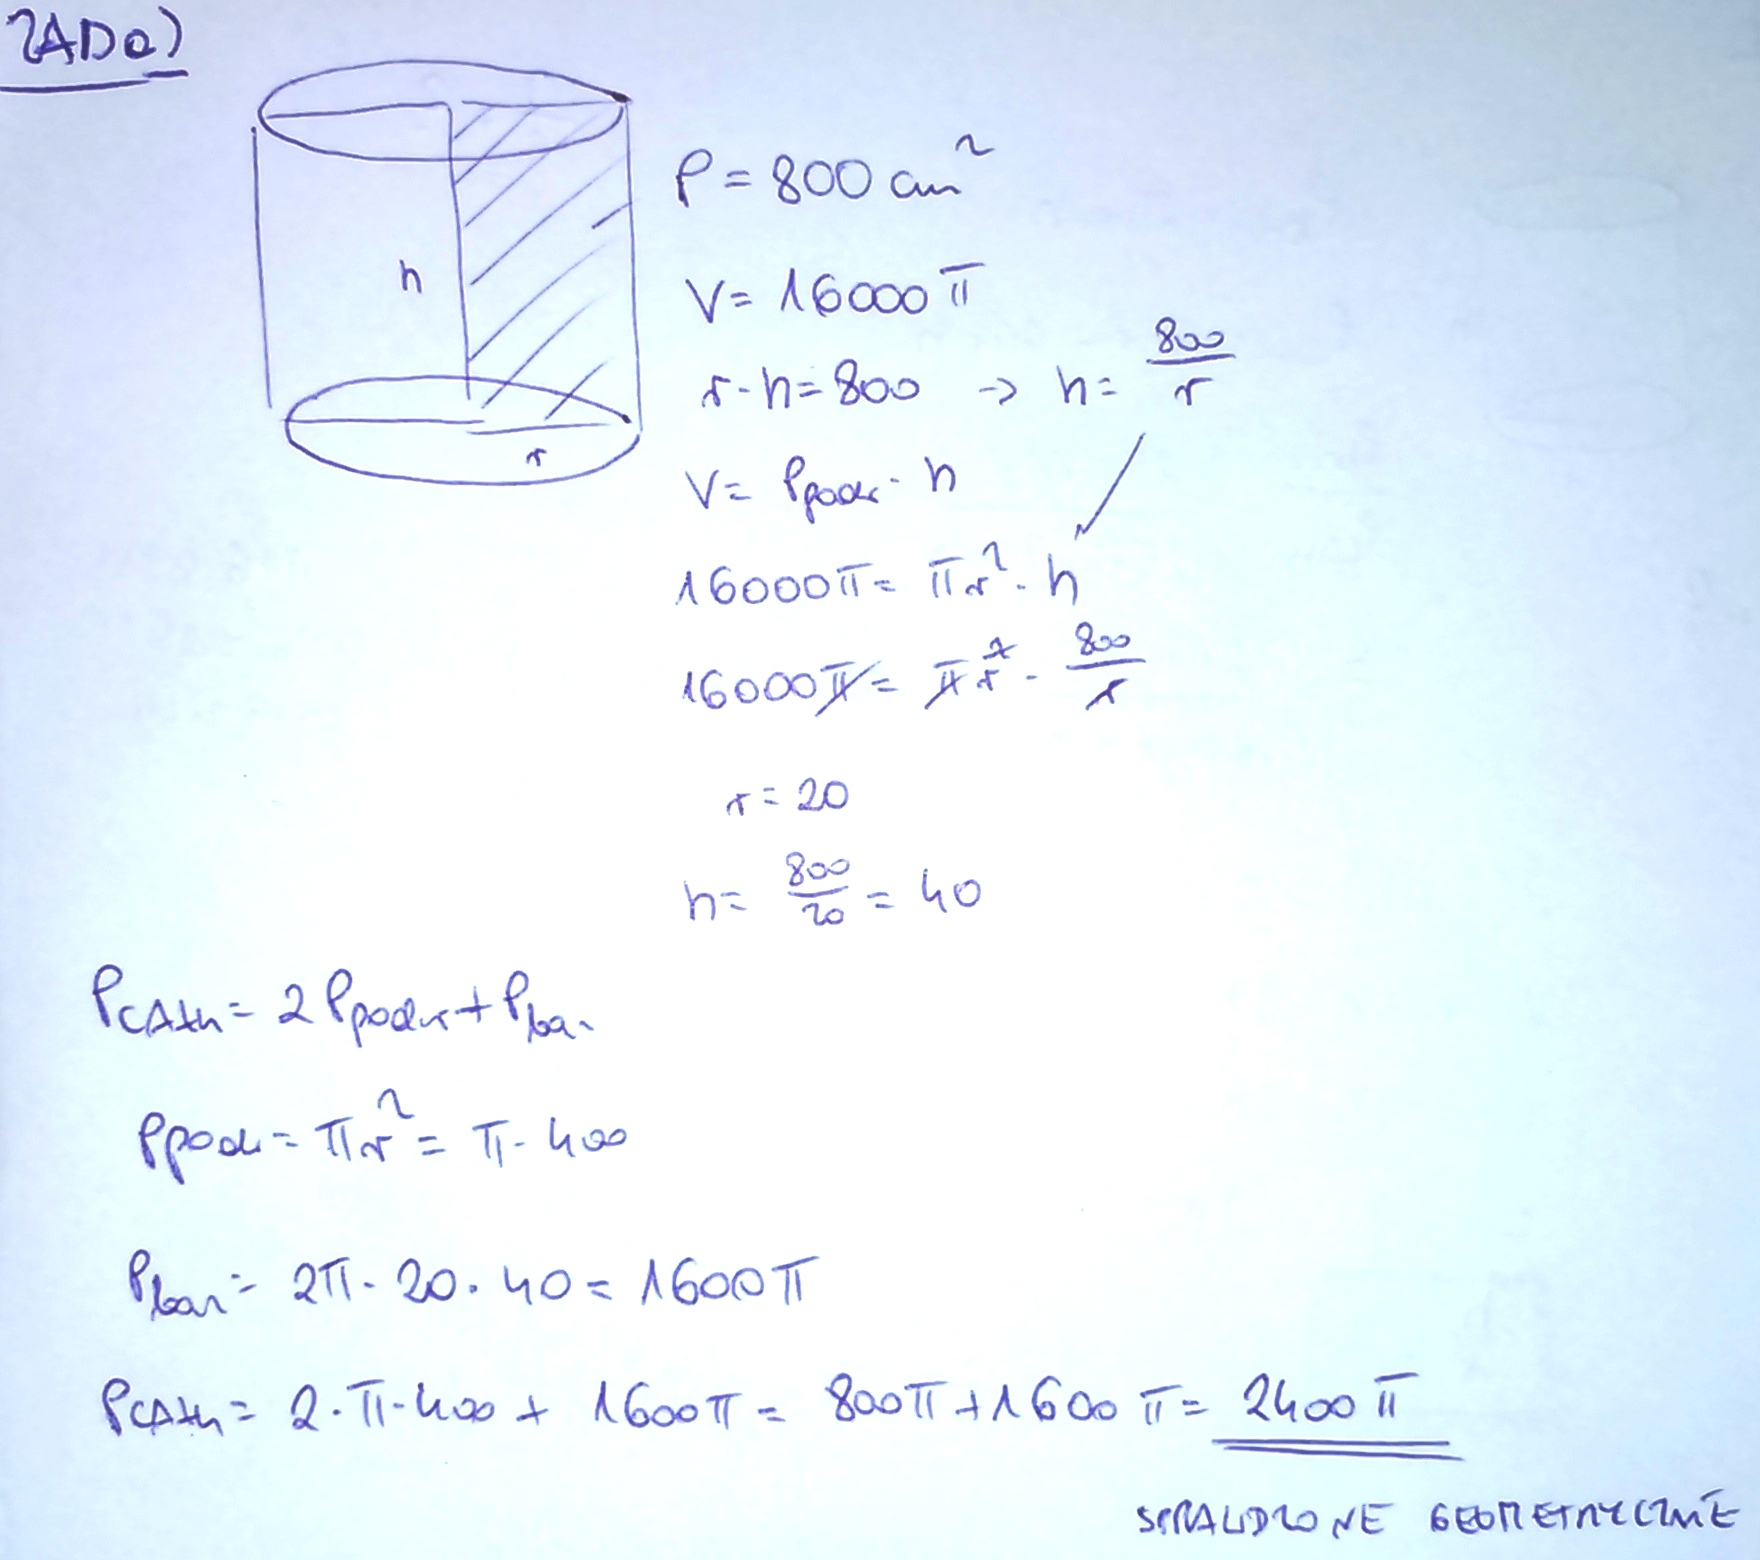 ZAD a)
P = 800 cm²
V = 16000 π
h
r · h = 800 → h = 800/r
r
V = Ppodst · h
16000π = πr² · h
16000π = πr² · 800/r
r = 20
h = 800/20 = 40
PCAłk = 2 Ppodst + Pbocz
Ppodst = πr² = π · 400
Pbocz = 2π · 20 · 40 = 1600π
PCAłk = 2 · π · 400 + 1600π = 800π + 1600π = 2400π
SPRAWDZONE GEOMETRYCZNIE